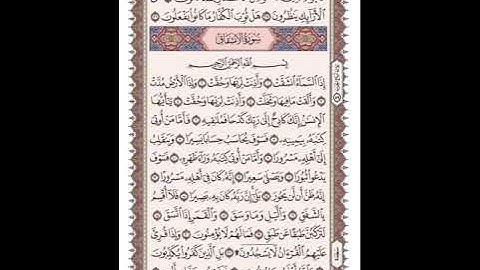 ٱلْأَرَآئِكِ يَنظُرُونَ ۝ هَلْ ثُوِّبَ ٱلْكُفَّارُ مَا كَانُوا۟ يَفْعَلُونَ ۝
سُورَةُ الانشِقَاقِ
بِسْمِ ٱللَّهِ ٱلرَّحْمَٰنِ ٱلرَّحِيمِ
إِذَا ٱلسَّمَآءُ ٱنشَقَّتْ ۝ وَأَذِنَتْ لِرَبِّهَا وَحُقَّتْ ۝ وَإِذَا ٱلْأَرْضُ مُدَّتْ
۝ وَأَلْقَتْ مَا فِيهَا وَتَخَلَّتْ ۝ وَأَذِنَتْ لِرَبِّهَا وَحُقَّتْ ۝ يَٰٓأَيُّهَا
ٱلْإِنسَٰنُ إِنَّكَ كَادِحٌ إِلَىٰ رَبِّكَ كَدْحًا فَمُلَٰقِيهِ ۝ فَأَمَّا مَنْ أُوتِىَ
كِتَٰبَهُۥ بِيَمِينِهِۦ ۝ فَسَوْفَ يُحَاسَبُ حِسَابًا يَسِيرًا ۝ وَيَنقَلِبُ
إِلَىٰٓ أَهْلِهِۦ مَسْرُورًا ۝ وَأَمَّا مَنْ أُوتِىَ كِتَٰبَهُۥ وَرَآءَ ظَهْرِهِۦ ۝ فَسَوْفَ
يَدْعُوا۟ ثُبُورًا ۝ وَيَصْلَىٰ سَعِيرًا ۝ إِنَّهُۥ كَانَ فِىٓ أَهْلِهِۦ مَسْرُورًا ۝
إِنَّهُۥ ظَنَّ أَن لَّن يَحُورَ ۝ بَلَىٰٓ إِنَّ رَبَّهُۥ كَانَ بِهِۦ بَصِيرًا ۝ فَلَآ أُقْسِمُ
بِٱلشَّفَقِ ۝ وَٱلَّيْلِ وَمَا وَسَقَ ۝ وَٱلْقَمَرِ إِذَا ٱتَّسَقَ ۝
لَتَرْكَبُنَّ طَبَقًا عَن طَبَقٍ ۝ فَمَا لَهُمْ لَا يُؤْمِنُونَ ۝ وَإِذَا قُرِئَ
عَلَيْهِمُ ٱلْقُرْءَانُ لَا يَسْجُدُونَ ۩ ۝ بَلِ ٱلَّذِينَ كَفَرُوا۟ يُكَذِّبُونَ